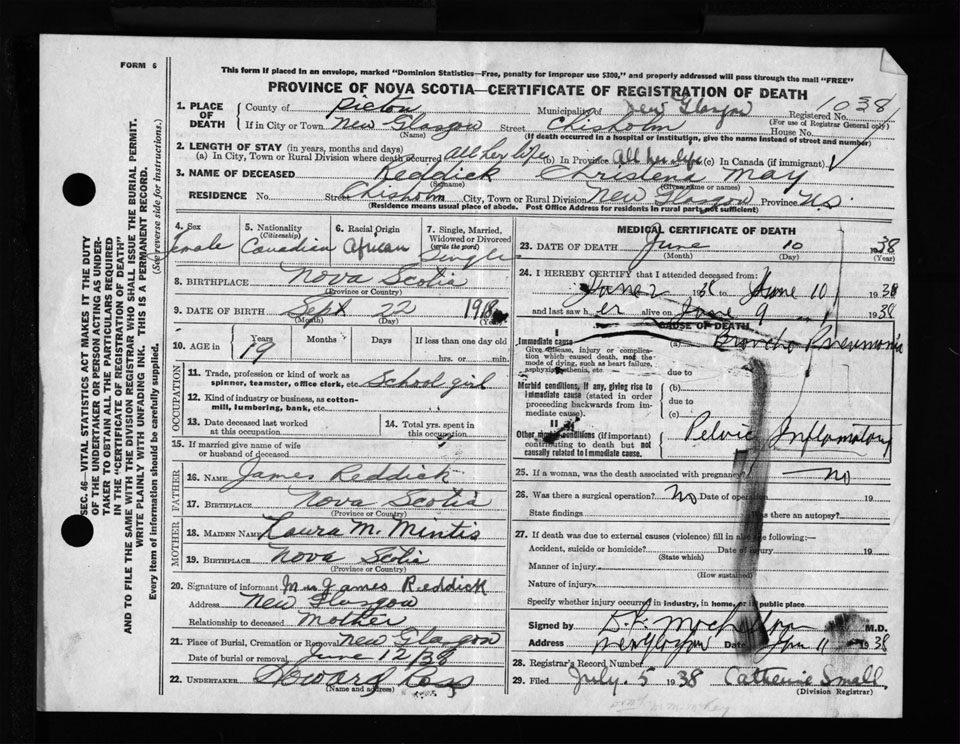 FORM 6
This form if placed in an envelope, marked "Dominion Statistics—Free, penalty for improper use $300," and properly addressed will pass through the mail "FREE"
PROVINCE OF NOVA SCOTIA—CERTIFICATE OF REGISTRATION OF DEATH
1. PLACE OF DEATH
County of Pictou Municipality of New Glasgow Registered No. 1038
(For use of Registrar General only)
If in City or Town New Glasgow Street Chisholm House No.
(Name) (If death occurred in a hospital or institution, give the name instead of street and number)
2. LENGTH OF STAY (in years, months and days)
(a) In City, Town or Rural Division where death occurred All her life (b) In Province All her life (c) In Canada (if immigrant)
3. NAME OF DECEASED Reddick Christena May
(Surname) (Given name or names)
RESIDENCE No. Street Chisholm City, Town or Rural Division New Glasgow Province N.S.
(Residence means usual place of abode. Post Office Address for residents in rural parts not sufficient)
4. Sex
5. Nationality (Citizenship) Canadian
6. Racial Origin African
7. Single, Married, Widowed or Divorced (write the word) Single
8. BIRTHPLACE Nova Scotia
(Province or Country)
9. DATE OF BIRTH Sept 22 1918
(Month) (Day) (Year)
10. AGE in Years Months Days If less than one day old
19 hrs. or min.
OCCUPATION
11. Trade, profession or kind of work as spinner, teamster, office clerk, etc. School girl
12. Kind of industry or business, as cotton-mill, lumbering, bank, etc.
13. Date deceased last worked at this occupation
14. Total yrs. spent in this occupation
15. If married give name of wife or husband of deceased
FATHER
16. NAME James Reddick
17. BIRTHPLACE Nova Scotia
(Province or Country)
MOTHER
18. MAIDEN NAME Laura M. Mintis
19. BIRTHPLACE Nova Scotia
(Province or Country)
20. Signature of informant Mrs James Reddick
Address New Glasgow
Relationship to deceased Mother
21. Place of Burial, Cremation or Removal New Glasgow
Date of burial or removal June 12/38
22. UNDERTAKER Howard Ross
(Name and address)
MEDICAL CERTIFICATE OF DEATH
23. DATE OF DEATH June 10 1938
(Month) (Day) (Year)
24. I HEREBY CERTIFY that I attended deceased from:
June 2 1938 to June 10 1938
and last saw her alive on June 9 1938
CAUSE OF DEATH
I
Immediate cause (a) Broncho Pneumonia
Give disease, injury or complication which caused death, not the mode of dying, such as heart failure, asphyxia, asthenia, etc.
due to
Morbid conditions, if any, giving rise to immediate cause (stated in order proceeding backwards from immediate cause).
(b)
due to
(c)
II
Other morbid conditions (if important) contributing to death but not causally related to immediate cause.
Pelvic Inflamatory
25. If a woman, was the death associated with pregnancy? no
26. Was there a surgical operation? no Date of operation 19
State findings Was there an autopsy?
27. If death was due to external causes (violence) fill in also the following:—
Accident, suicide or homicide? Date of injury 19
(State which)
Manner of injury
(How sustained)
Nature of injury
Specify whether injury occurred in industry, in home, or in public place
Signed by M.D.
Address Date 11 1938
28. Registrar's Record Number
29. Filed July 5 1938 Catherine Small
(Division Registrar)
SEC. 46—VITAL STATISTICS ACT MAKES IT THE DUTY
OF THE UNDERTAKER OR PERSON ACTING AS UNDER-
TAKER TO OBTAIN ALL THE PARTICULARS REQUIRED
IN THE "CERTIFICATE OF REGISTRATION OF DEATH"
AND TO FILE THE SAME WITH THE DIVISION REGISTRAR WHO SHALL ISSUE THE BURIAL PERMIT.
WRITE PLAINLY WITH UNFADING INK. THIS IS A PERMANENT RECORD.
Every item of information should be carefully supplied. (See reverse side for instructions.)